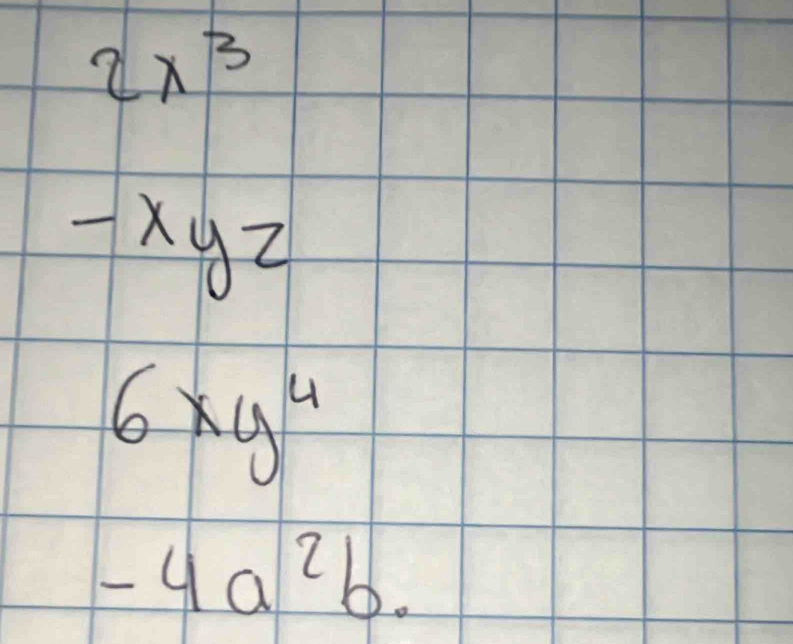 2x³
-xyz
6xy⁴
-4a²b.